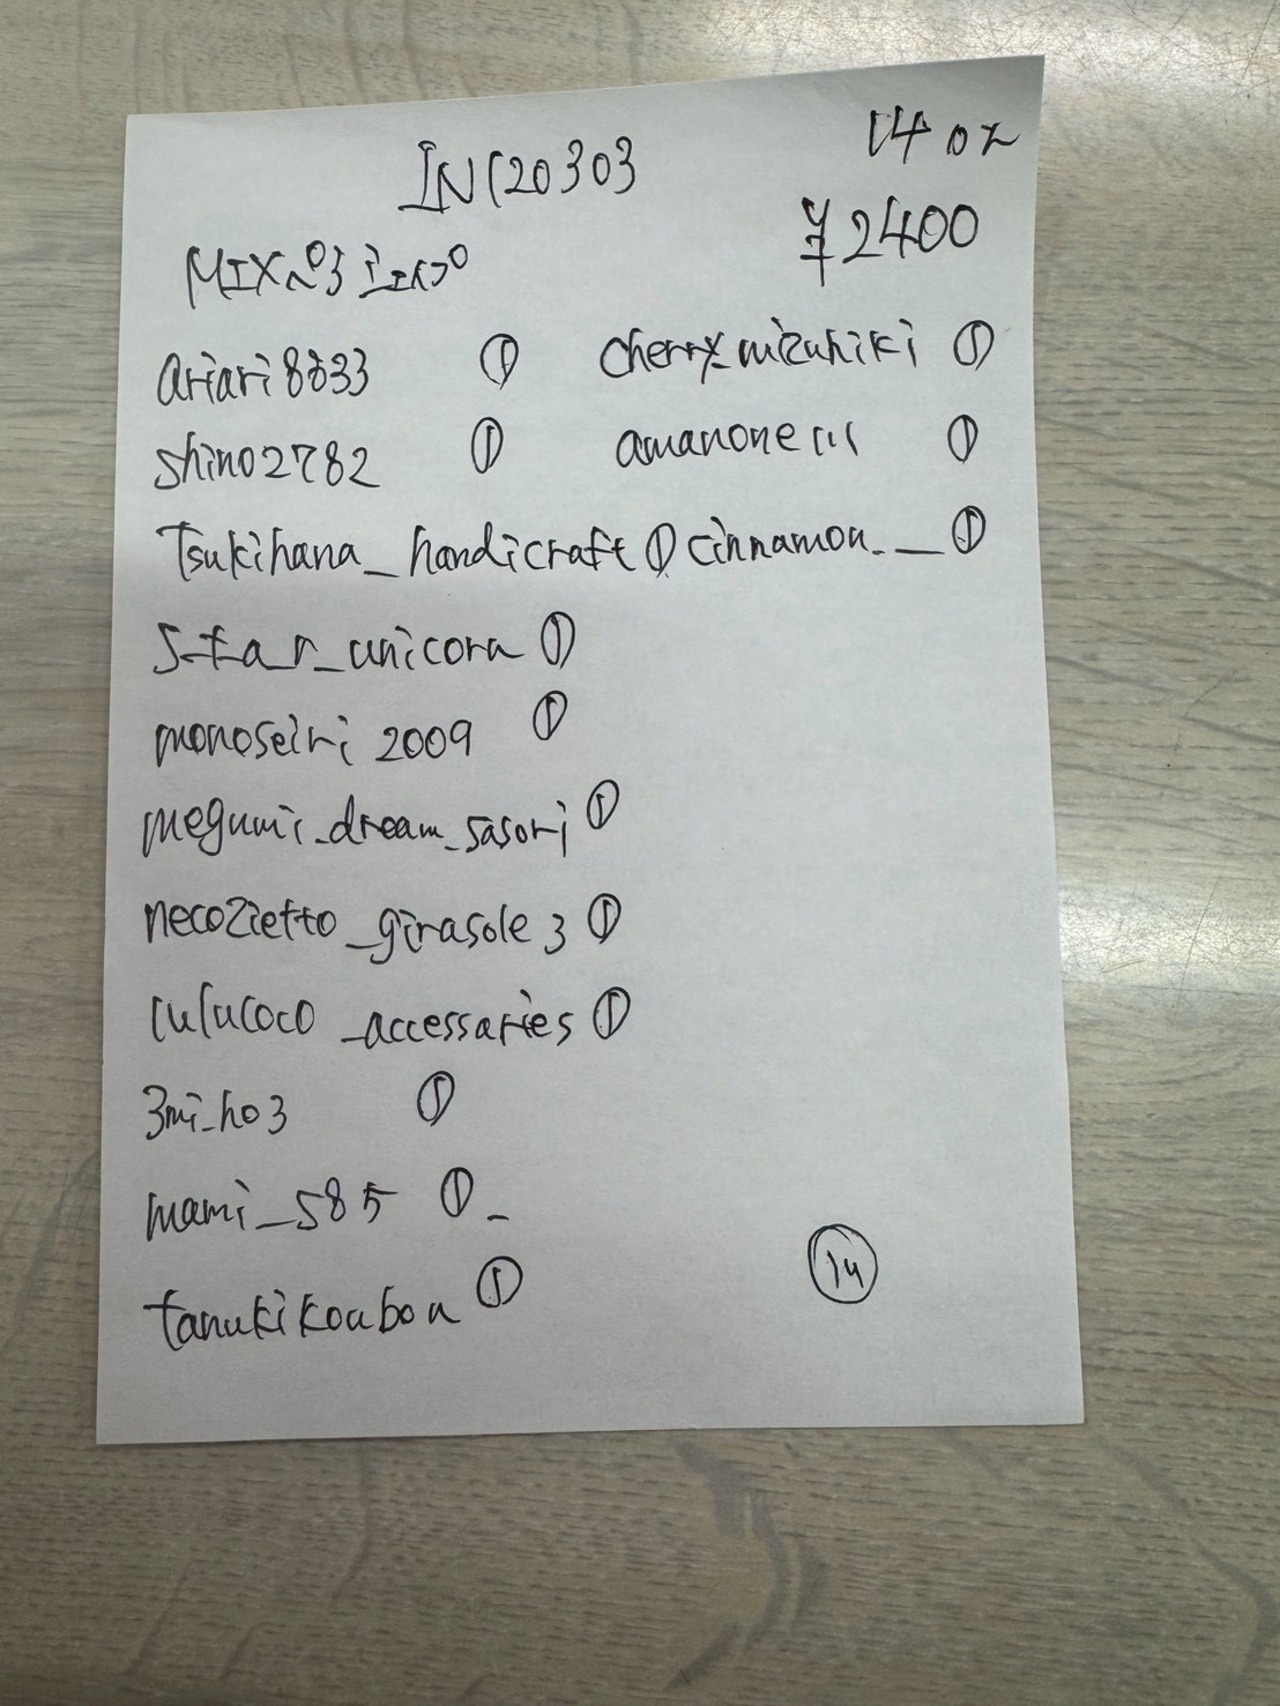 IN120303
14 oz
¥2400
MIX
ariari8833 ①
shino2782 ①
Tsukihana_handicraft ①
s_t_a_r_unicorn ①
monoseiri2009 ①
megumi_dream_sasori ①
necozietto_girasole3 ①
lulucoco_accessaries ①
3mi_ho3 ①
mami_585 ① _
tanukikoubou ①
cherry_mizuhiki ①
amanone111 ①
cinnamon.__ ①
⑭